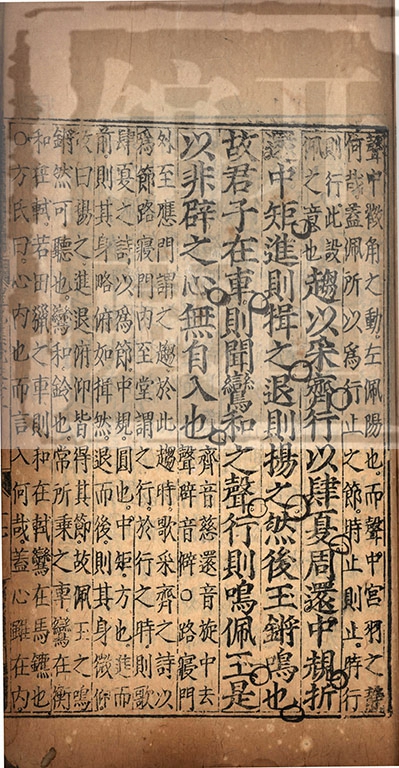 聲中徵角之動左佩陽也而聲中宮羽之聲
何哉蓋佩所以爲行止之節時止則止時行
則行此設
佩之意也
趨以采齊行以肆夏周還中規折
還中矩進則揖之退則揚之然後玉鏘鳴也
故君子在車則聞鸞和之聲行則鳴佩玉是
以非辟之心無自入也
齊音慈還音旋中去
聲辟音僻○路寢門
外至應門謂之趨於此趨時歌采齊之詩以
爲節路寢門內至堂謂之行於行之時則歌
肆夏之詩以爲節中規圓也中矩方也進而
前則其身略俯如揖然退而後則其身微仰
故曰揚之進退俯仰皆得其節故佩玉之鳴
鏘然可聽也鸞和鈴也常所乘之車鸞在衡
和在軾若田獵之車則和在軾鸞在馬鑣也
○方氏曰心內也而言入何哉蓋心雖在內